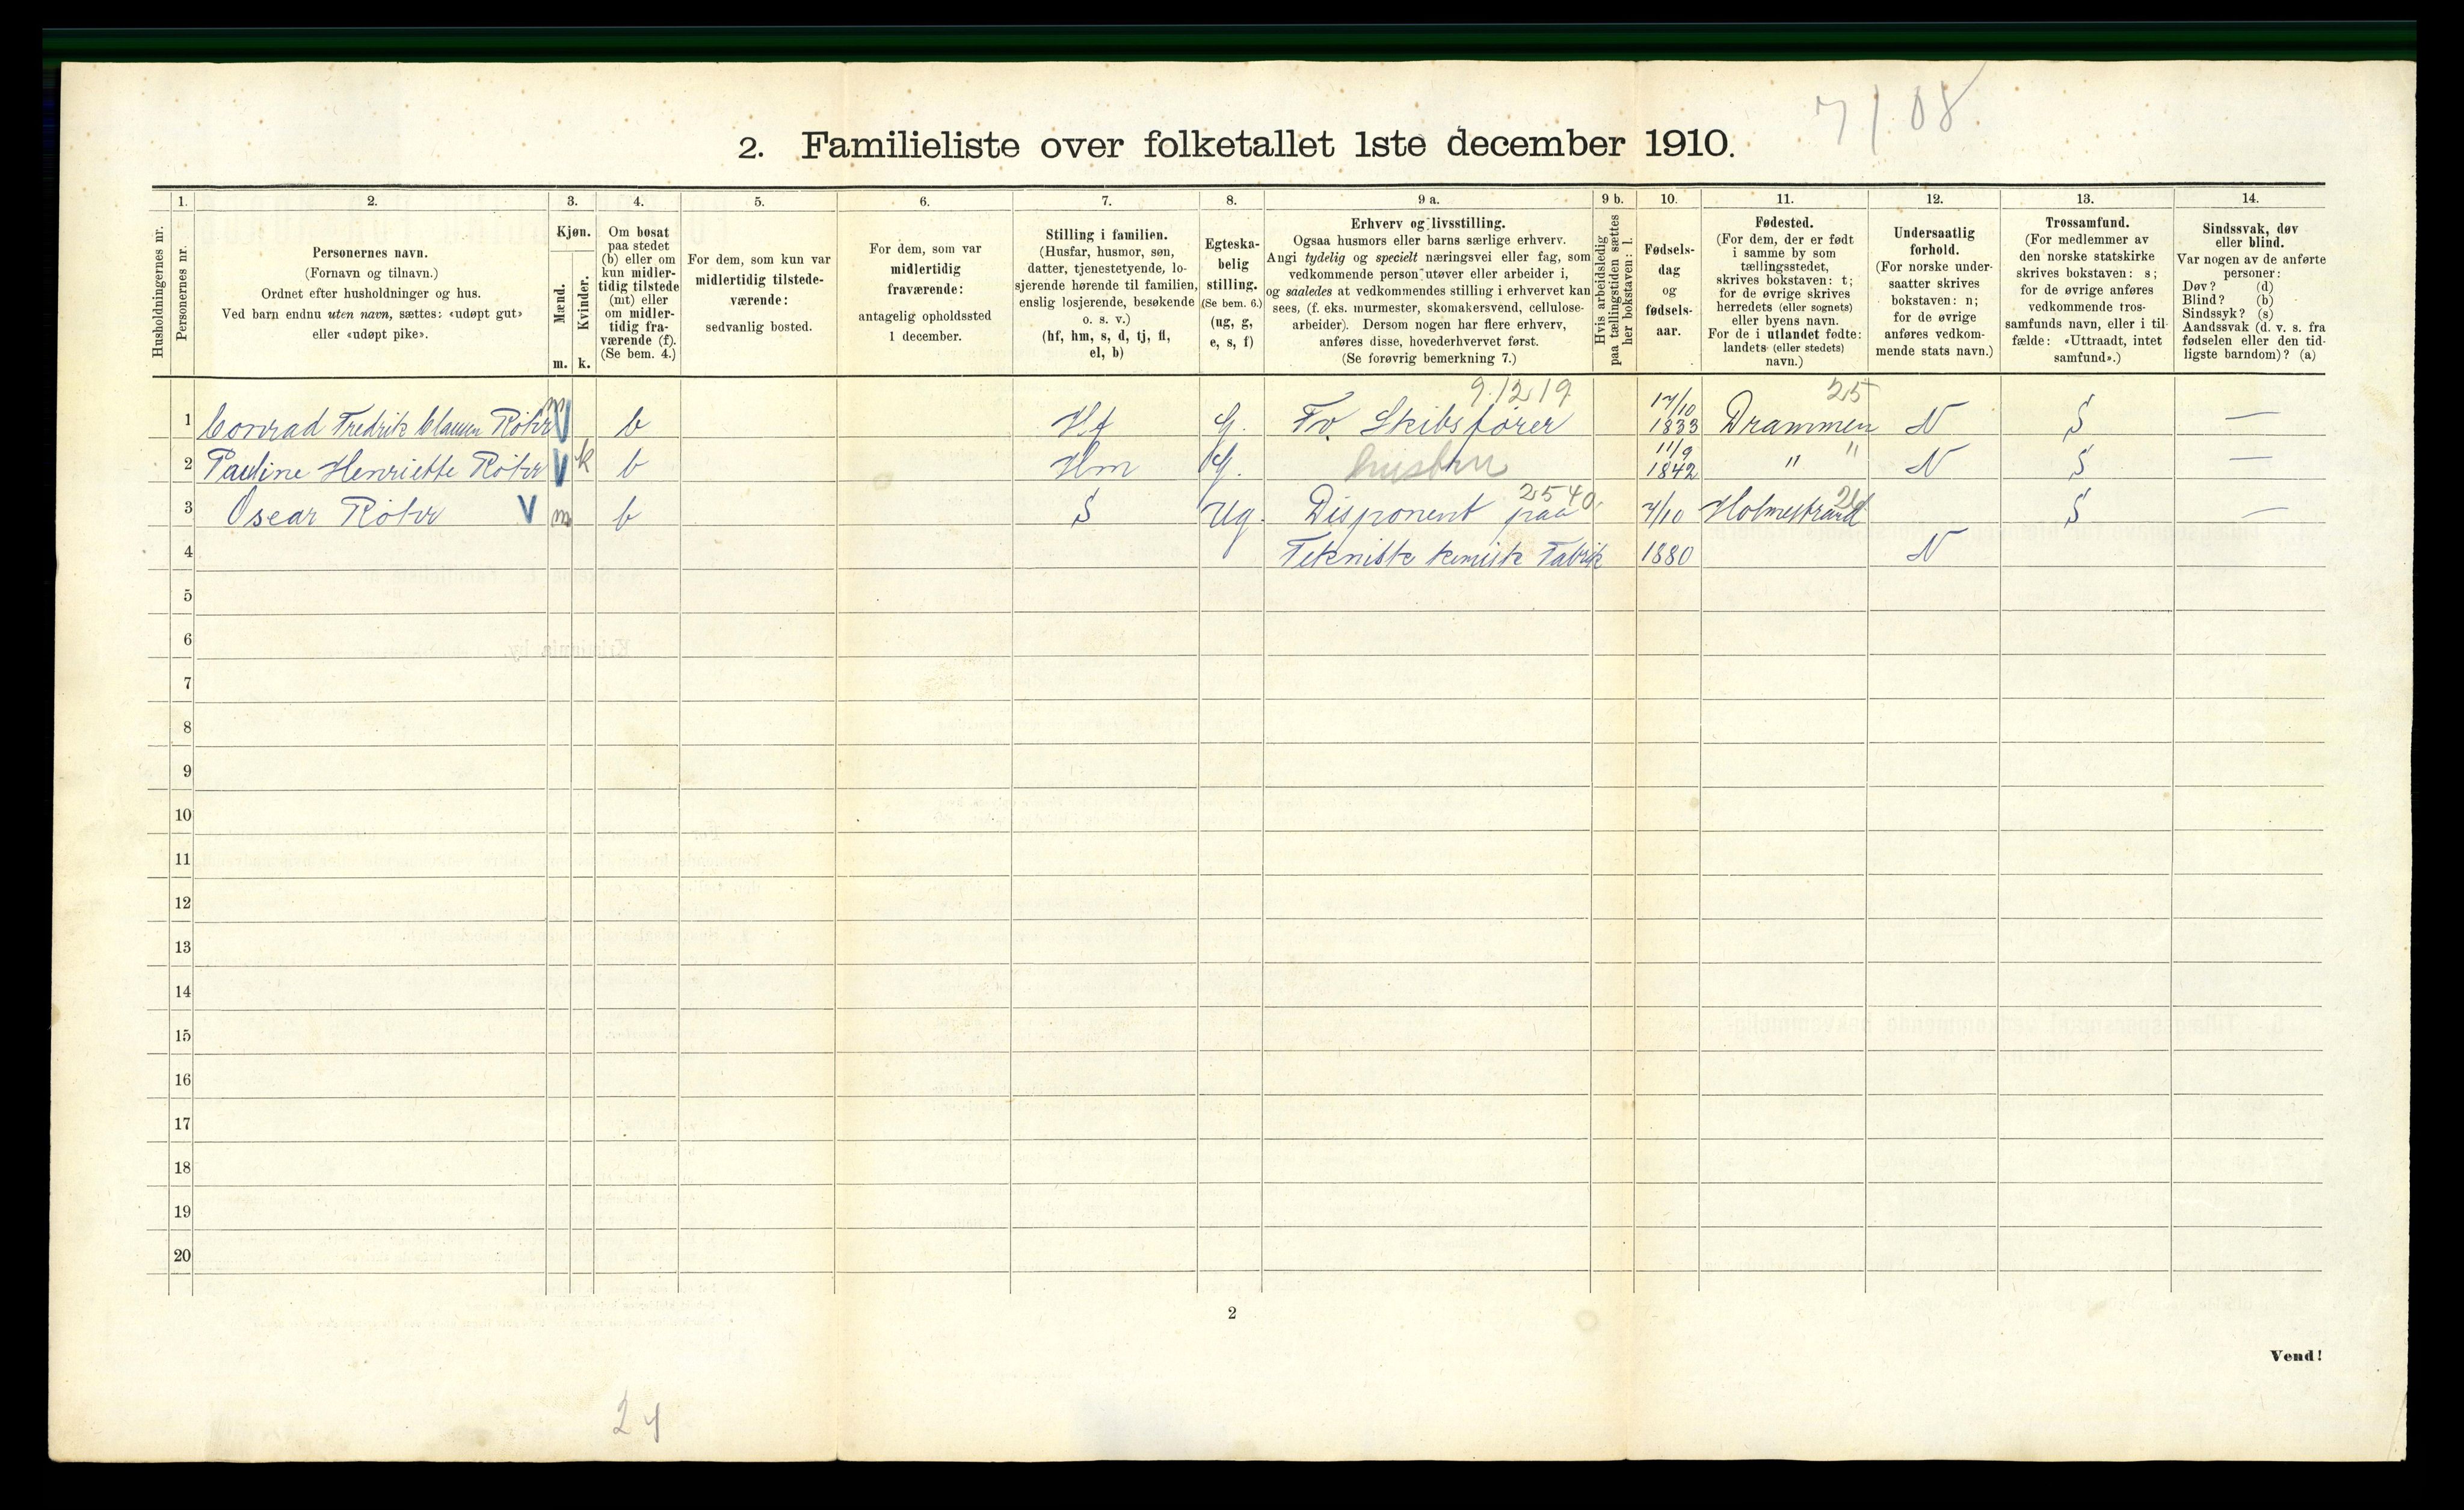 7/08.
2. Familieliste over folketallet 1ste december 1910.
Husholdningernes nr.
1.
Personernes nr.
2.
Personernes navn.
(Fornavn og tilnavn.)
Ordnet efter husholdninger og hus.
Ved barn endnu uten navn, sættes: «udøpt gut»
eller «udøpt pike».
3.
Kjøn.
Mænd.
Kvinder.
m. k.
4.
Om bosat
paa stedet
(b) eller om
kun midler-
tidig tilstede
(mt) eller
om midler-
tidig fra-
værende (f).
(Se bem. 4.)
5.
For dem, som kun var
midlertidig tilstede-
værende:
sedvanlig bosted.
6.
For dem, som var
midlertidig
fraværende:
antagelig opholdssted
1 december.
7.
Stilling i familien.
(Husfar, husmor, søn,
datter, tjenestetyende, lo-
sjerende hørende til familien,
enslig losjerende, besøkende
o. s. v.)
(hf, hm, s, d, tj, fl,
el, b)
8.
Egteska-
belig
stilling.
(Se bem. 6.)
(ug, g,
e, s, f)
9 a.
Erhverv og livsstilling.
Ogsaa husmors eller barns særlige erhverv.
Angi tydelig og specielt næringsvei eller fag, som
vedkommende person utøver eller arbeider i,
og saaledes at vedkommendes stilling i erhvervet kan
sees, (f. eks. murmester, skomakersvend, cellulose-
arbeider). Dersom nogen har flere erhverv,
anføres disse, hovederhvervet først.
(Se forøvrig bemerkning 7.)
9 b.
Hvis arbeidsledig
paa tællingstiden sættes
her bokstaven: l.
10.
Fødsels-
dag
og
fødsels-
aar.
11.
Fødested.
(For dem, der er født
i samme by som
tællingsstedet,
skrives bokstaven: t;
for de øvrige skrives
herredets (eller sognets)
eller byens navn.
For de i utlandet fødte:
landets (eller stedets)
navn.)
12.
Undersaatlig
forhold.
(For norske under-
saatter skrives
bokstaven: n;
for de øvrige
anføres vedkom-
mende stats navn.)
13.
Trossamfund.
(For medlemmer av
den norske statskirke
skrives bokstaven: s;
for de øvrige anføres
vedkommende tros-
samfunds navn, eller i til-
fælde: «Uttraadt, intet
samfund».)
14.
Sindssvak, døv
eller blind.
Var nogen av de anførte
personer:
Døv? (d)
Blind? (b)
Sindssyk? (s)
Aandssvak (d. v. s. fra
fødselen eller den tid-
ligste barndom)? (a)
9.12 19 25
1 Conrad Fredrik Clausen Röhr m V b Hf G. Fv. Skibsfører 17/10 1833 Drammen N S —
2 Pauline Henriette Röhr V k b Hm G. husbru 11/9 1842 " " N S —
2540. 26
3 Oscar Röhr V m b S Ug. Disponent paa 7/10 Holmestrand S —
4 Teknisk kemisk Fabrik 1880 N
5
6
7
8
9
10
11
12
13
14
15
16
17
18
19
20
2
Vend!
24